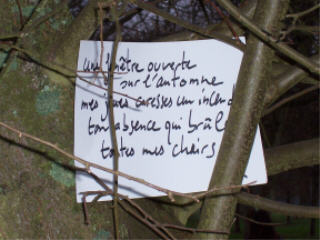 une fenêtre ouverte
sur l'automne
mes joues caresses un incend
ton absence qui brûl
toutes mes chairs